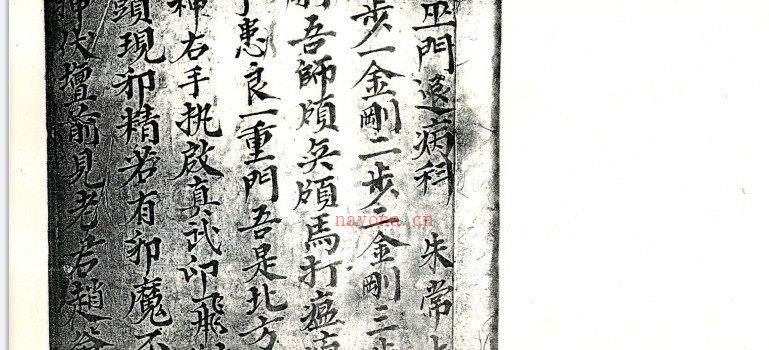 巫門遠病科 朱常
步一金剛二步二金剛三步
吾師領兵領馬打瘟
患良一重門吾是北方
神右手执啟真武印飛
頭現邪精若有邪魔不
押伏壇前見老君趙
nayona.cn